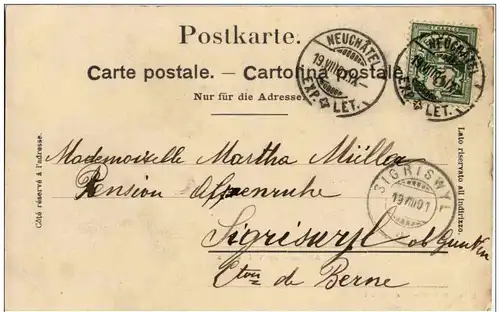 Postkarte.
Carte postale. — Cartolina postale.
Nur für die Adresse.
NEUCHÂTEL
19.VIII.01.IX-
EXP. LET.
NEUCHÂTEL
EXP. LET.
Côté réservé à l'adresse.
Lato riservato all indirizzo.
Mademoiselle Martha Müller
Pension Alpenruhe
Sigriswyl ob Gunten
Cton de Berne
SIGRISWYL
19.VIII.01